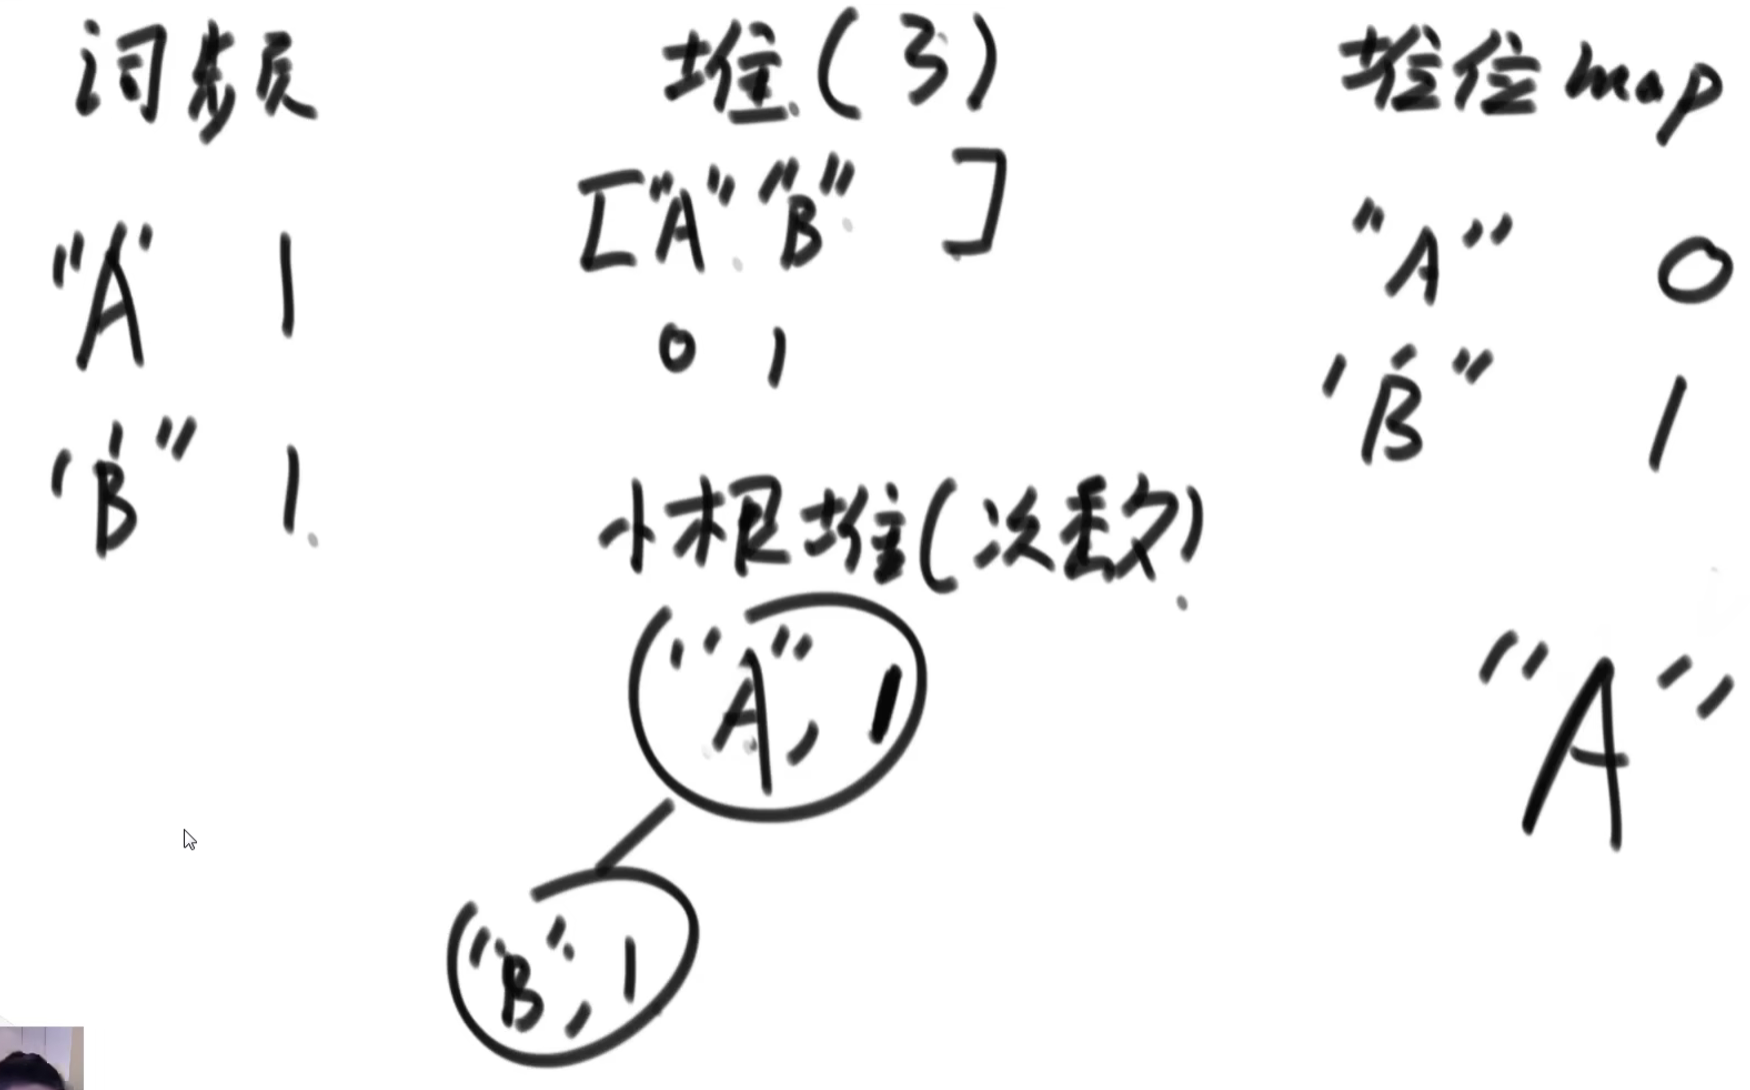 词频
"A" 1
'B" 1
堆(3)
["A" "B" ]
0 1
小根堆(次数)
"A", 1
"B", 1
堆位map
"A" 0
'B" 1
"A"